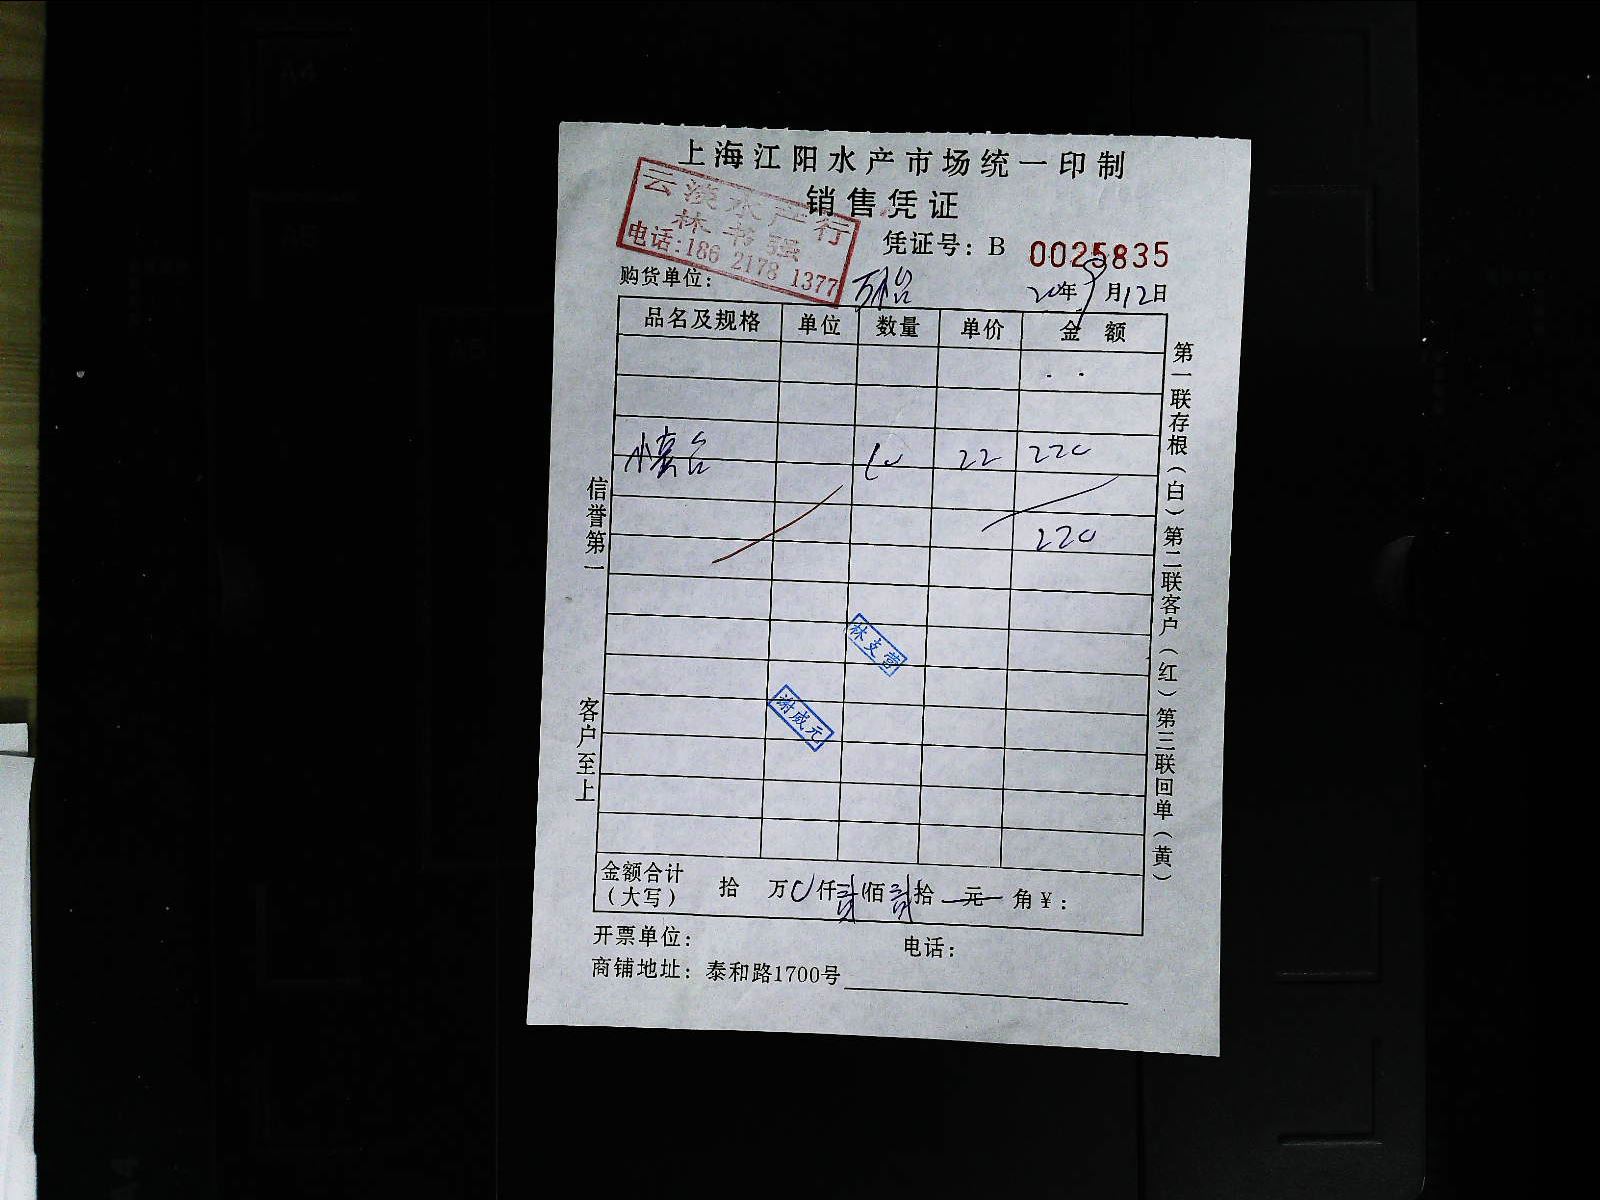 上海江阳水产市场统一印制
销售凭证
云淡水产行
林书强
电话:186 2178 1377
凭证号: B 0025835
购货单位: 万怡
20年9月12日
品名及规格 单位 数量 单价 金额
10 22 220
220
信誉第一
客户至上
第一联存根(白)第二联客户(红)第三联回单(黄)
林支营
谢威元
金额合计(大写) 拾 万0仟贰佰贰拾 元 角¥:
开票单位: 电话:
商铺地址: 泰和路1700号